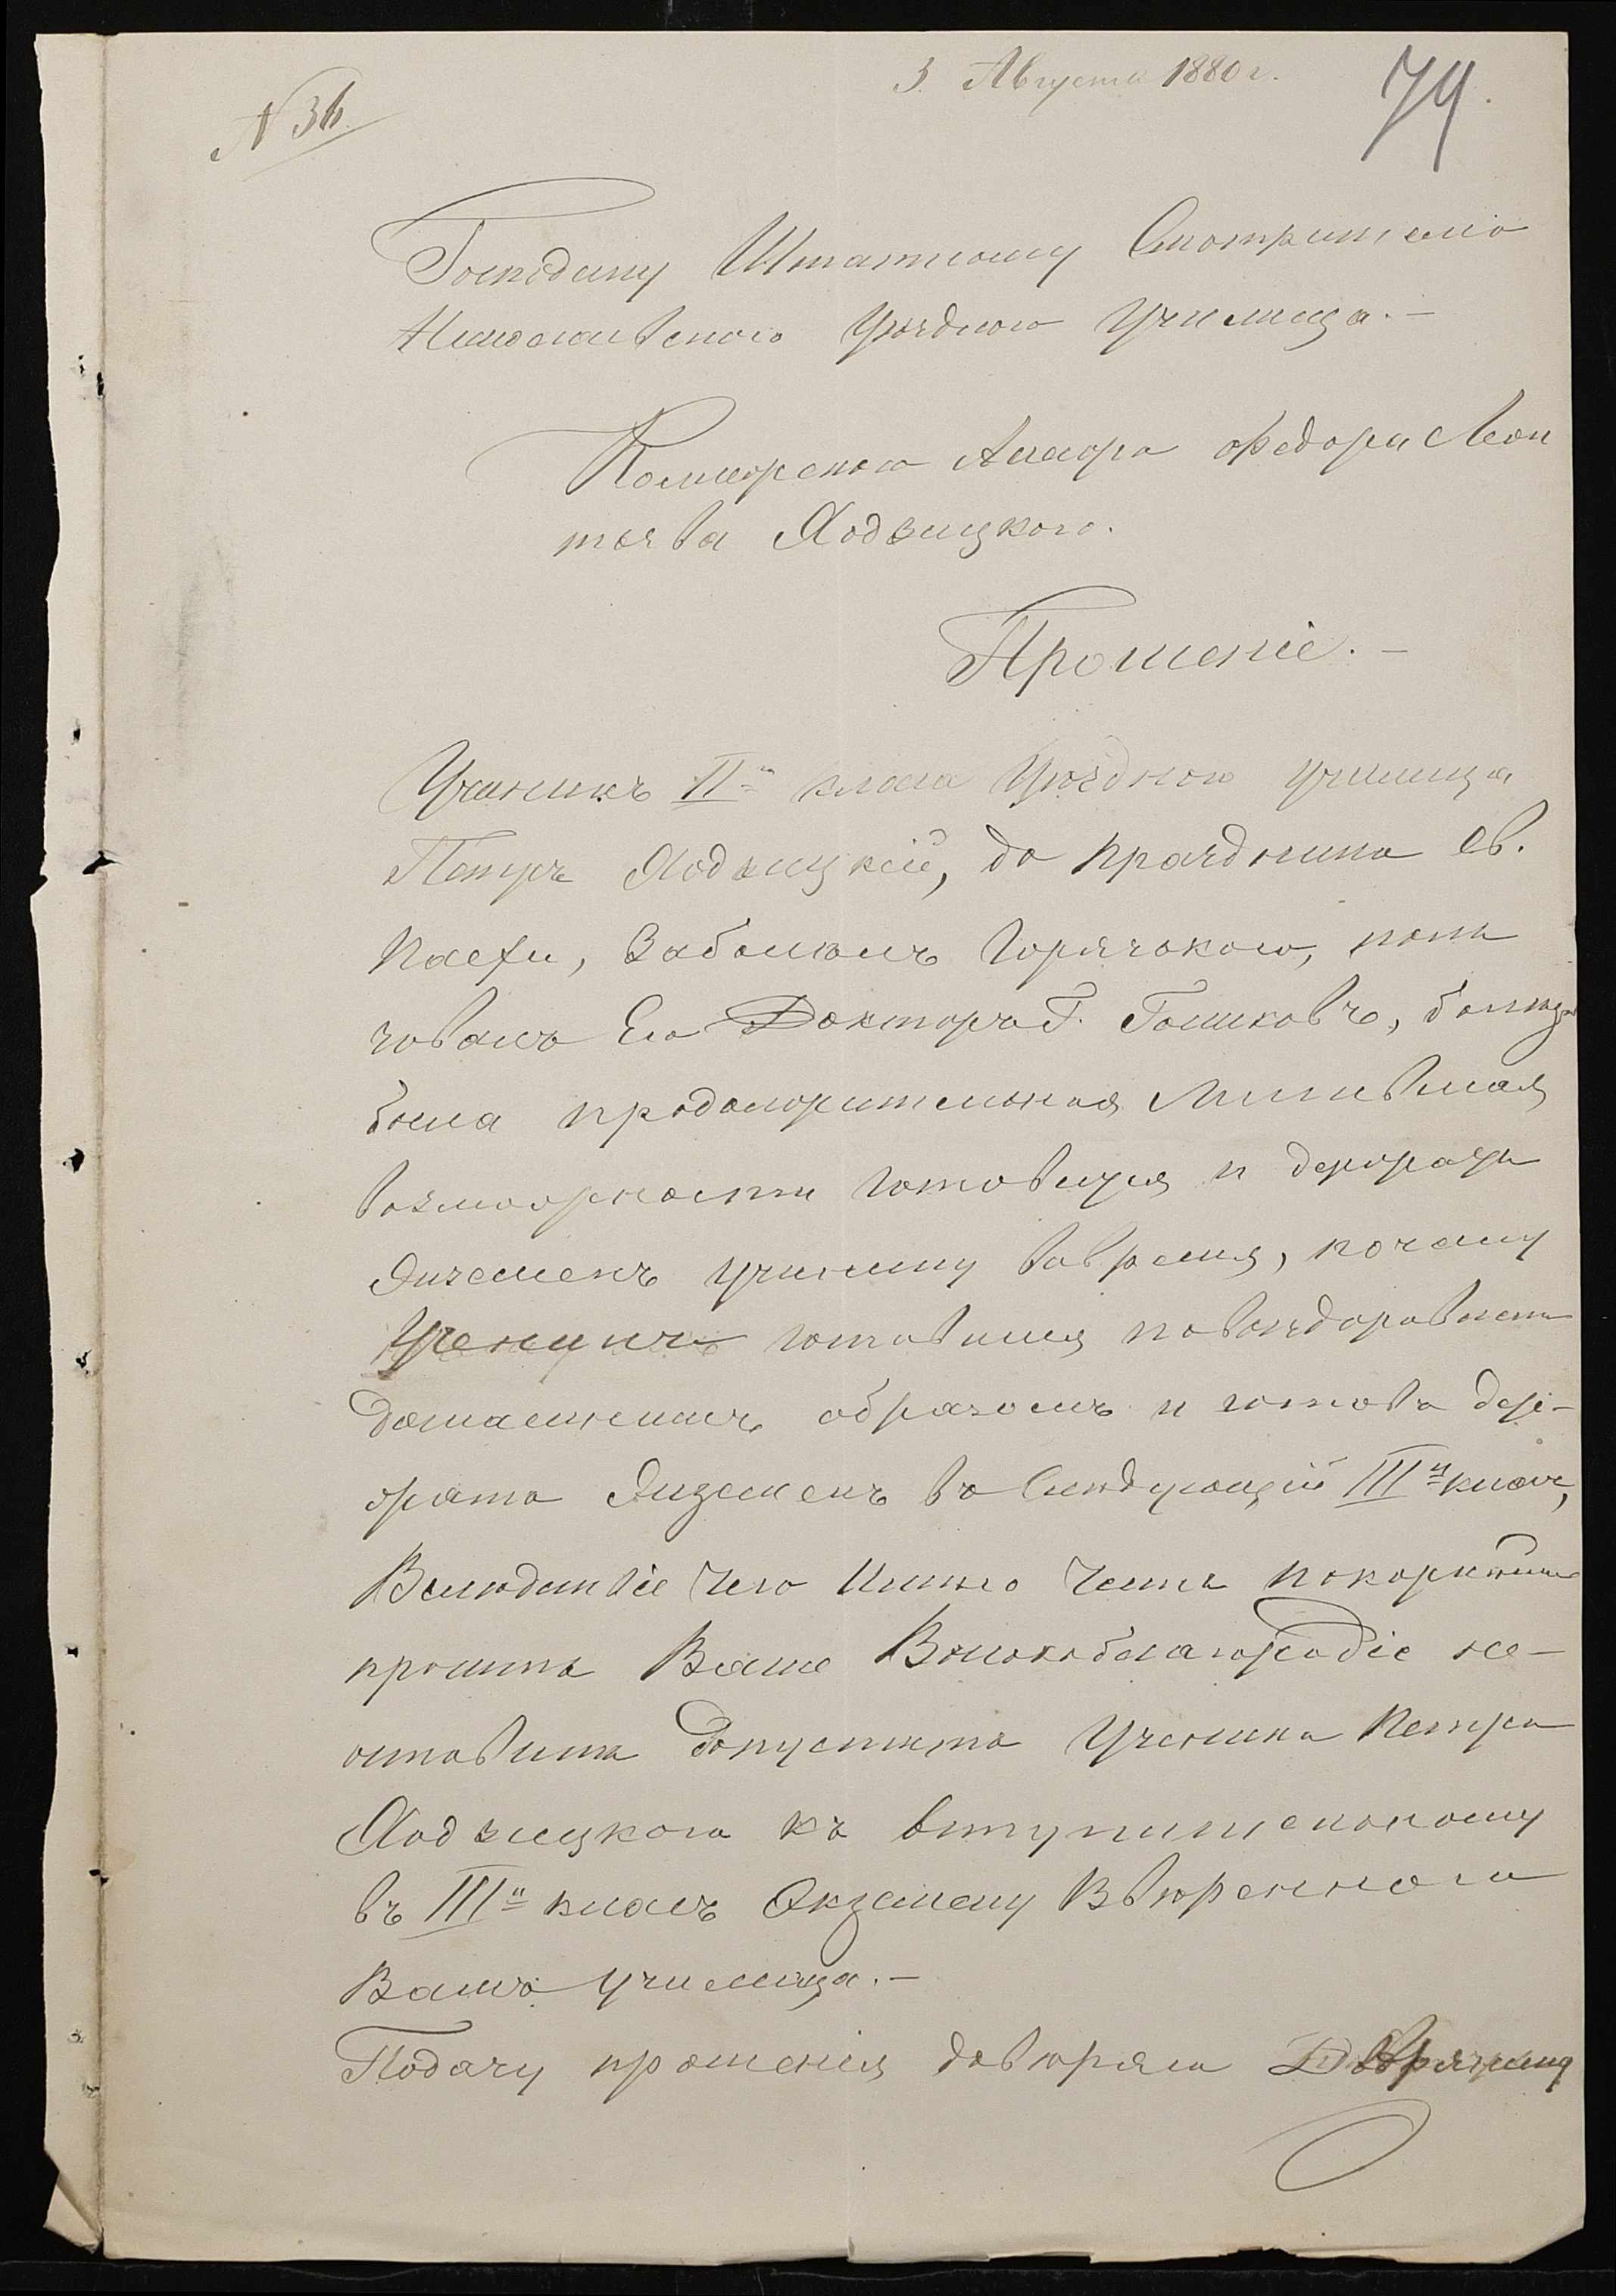 3 Августа 1880 г.
79.
N 36.
Господину Штатному Смотрителю
Николаевскаго Уѣзднаго Училища.—
Федора Леон
тьева Ходзицкого.
Прошеніе.—
Ученикъ II-й класа Уѣзднаго училища
Петръ Ходзицкій, до праздника Св.
Пасхи, Заболѣлъ Горячькою, поль
зовалъ Его Докторъ Г. Гошковъ, болѣзнь
была продолжительная Лишившая
возможности готовится и держать
экземенъ ученику вовремя, почему
Ученикъ готовился по выздоровленіи
домашнимъ образомъ и готовъ дер-
жать Экземенъ въ Слѣдующій III-й класъ,
Вслѣдствіе Чего Имѣю Честь покорнѣйше
просить Ваше Высокоблагородіе не-
оставить допустить Ученика Петра
Ходзицкого къ вступительному
въ III-й класъ Экземену Ввѣренного
Вамъ училища.—
Подачу прошенія довѣряю Дворянину